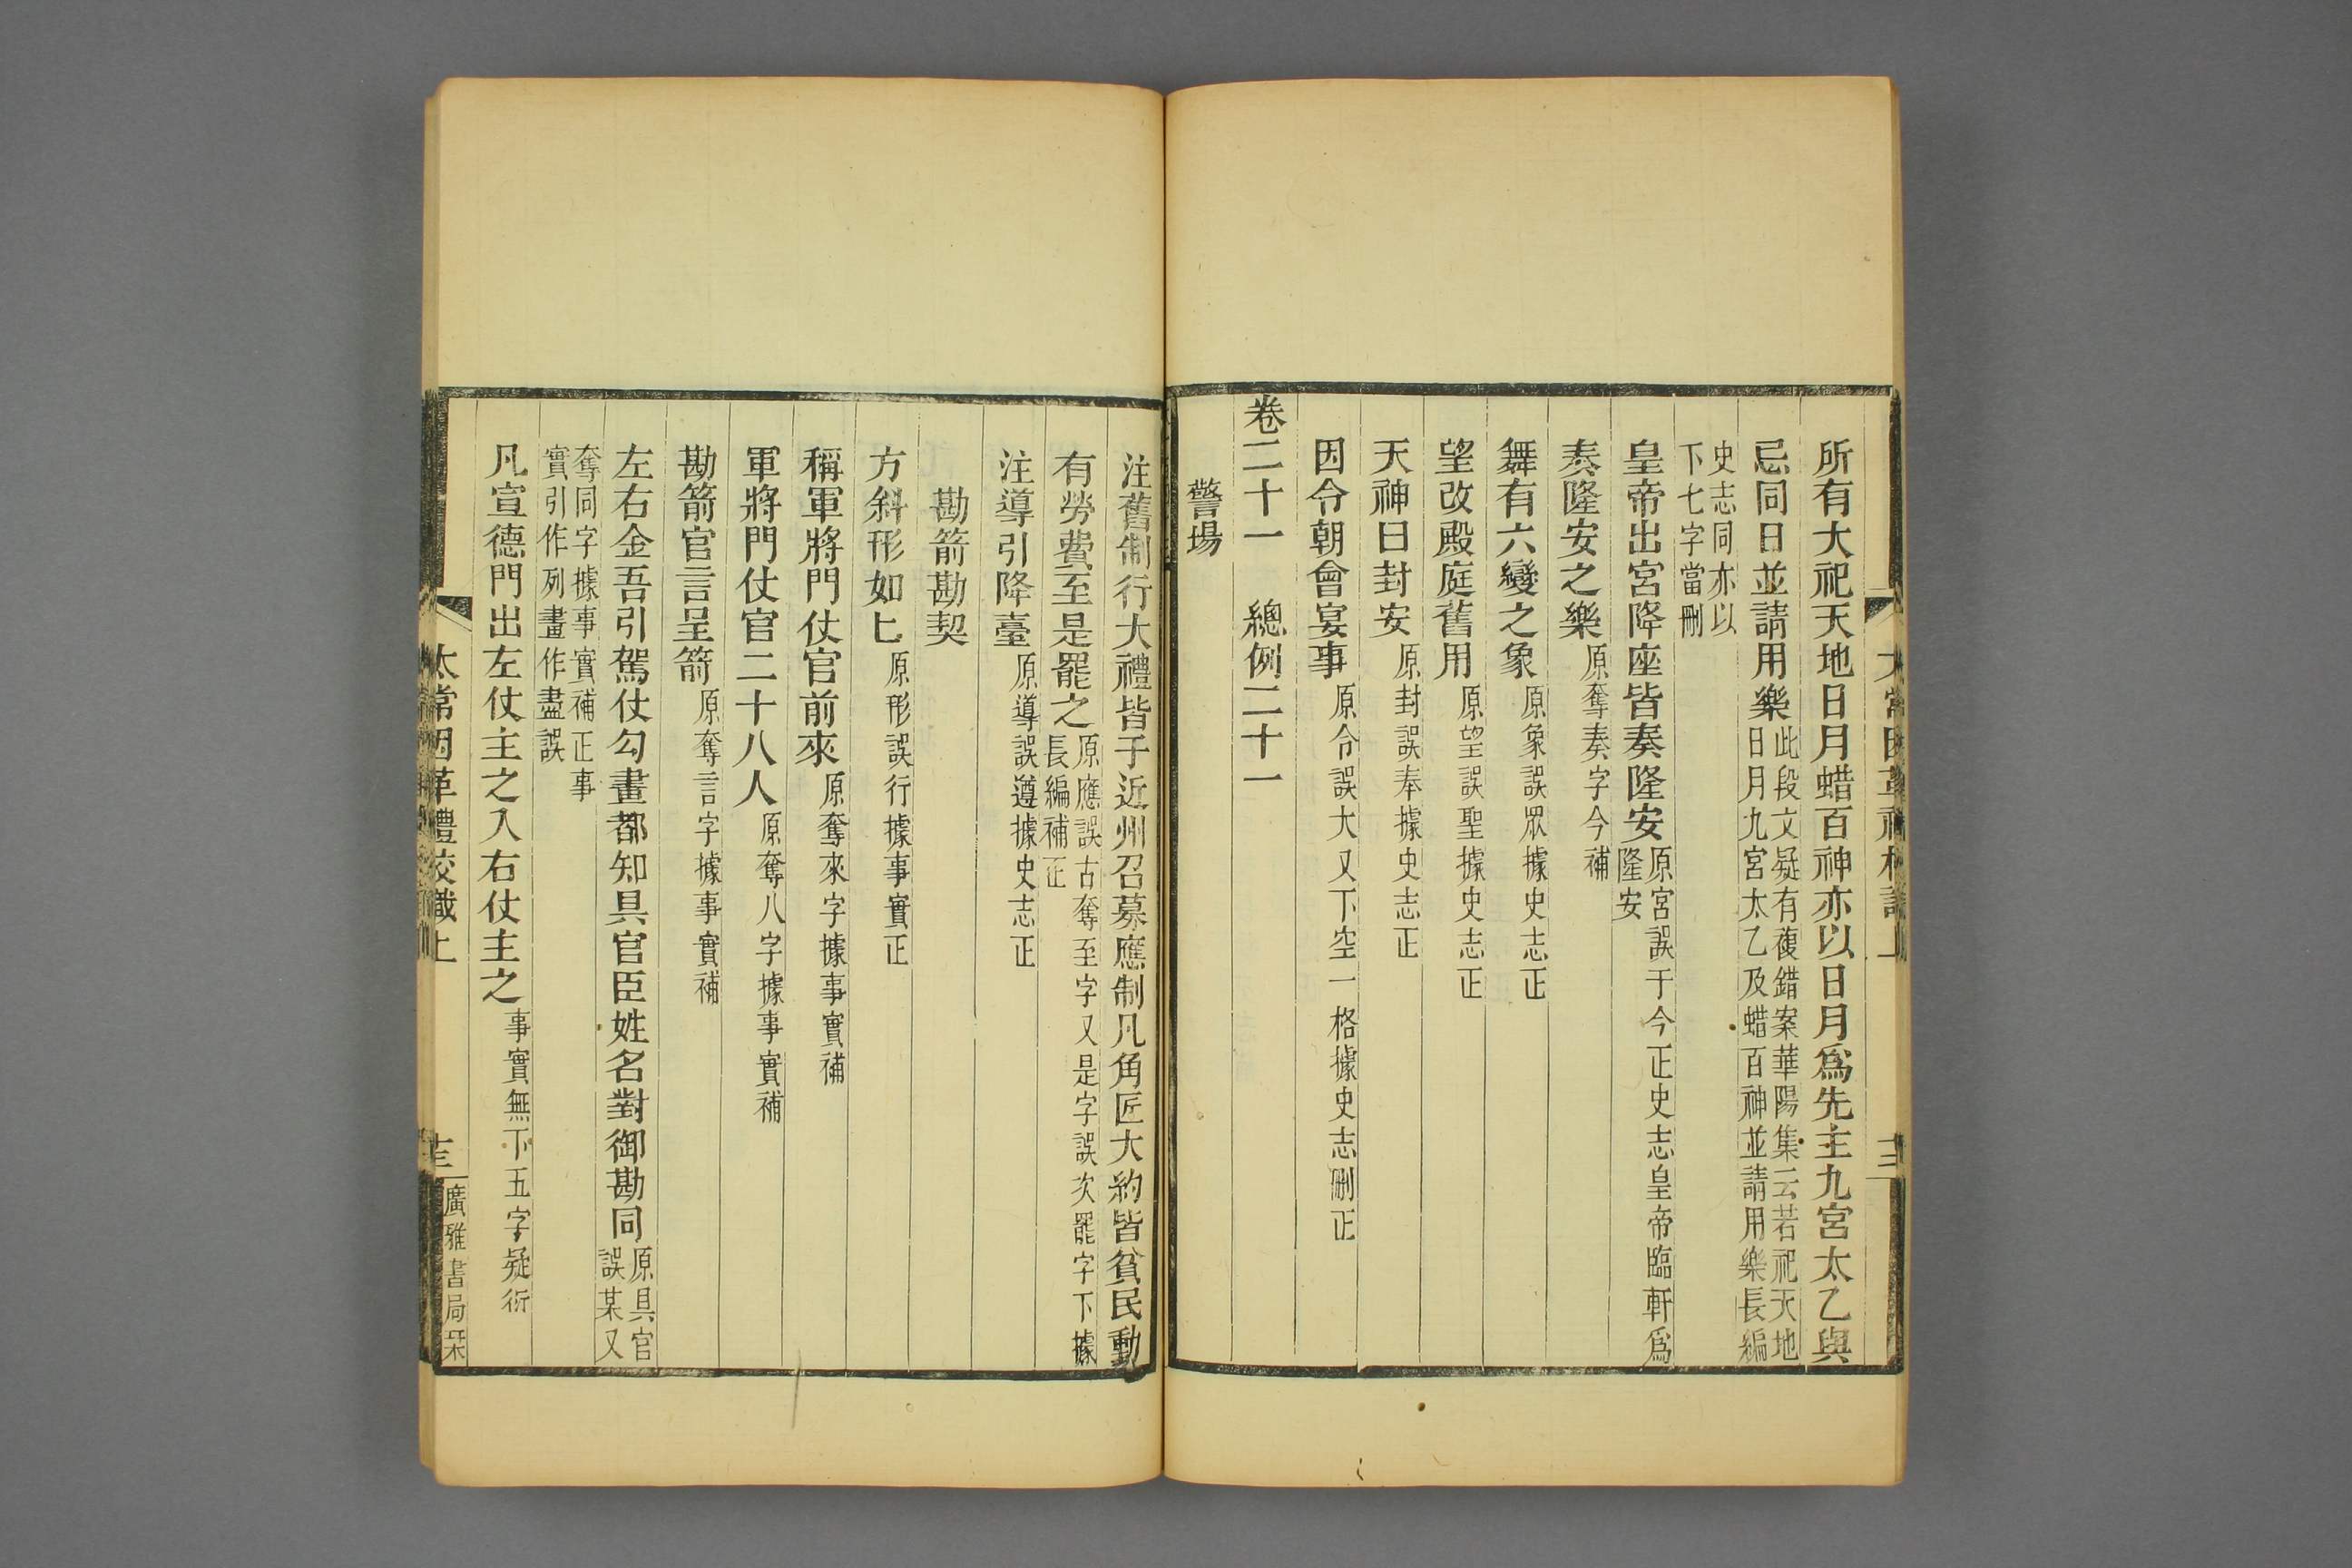 太常因革禮校識上
十二
所有大祀天地日月蜡百神亦以日月爲先主九宮太乙與
忌同日並請用樂此段文疑有複錯案華陽集云若祀天地日月九宮太乙及蜡百神並請用樂長編
史志同亦以下七字當刪
皇帝出宮降座皆奏隆安原宮誤于今正史志皇帝臨軒爲隆安
奏隆安之樂原奪奏字今補
舞有六變之象原象誤眾據史志正
望改殿庭舊用原望誤聖據史志正
天神曰封安原封誤奉據史志正
因令朝會宴事原令誤大又下空一格據史志刪正
卷二十一 總例二十一
警場
注舊制行大禮皆于近州召募應制凡角匠大約皆貧民動
有勞費至是罷之原應誤古奪至字又是字誤次罷字下據長編補正
注導引降臺原導誤遵據史志正
勘箭勘契
方斜形如匕原形誤行據事實正
稱軍將門仗官前來原奪來字據事實補
軍將門仗官二十八人原奪八字據事實補
勘箭官言呈箭原奪言字據事實補
左右金吾引駕仗勾畫都知具官臣姓名對御勘同原具官誤某又
奪同字據事實補正事實引作列畫作盡誤
凡宣德門出左仗主之入右仗主之事實無下五字疑衍
太常因革禮校識上
十三
廣雅書局栞